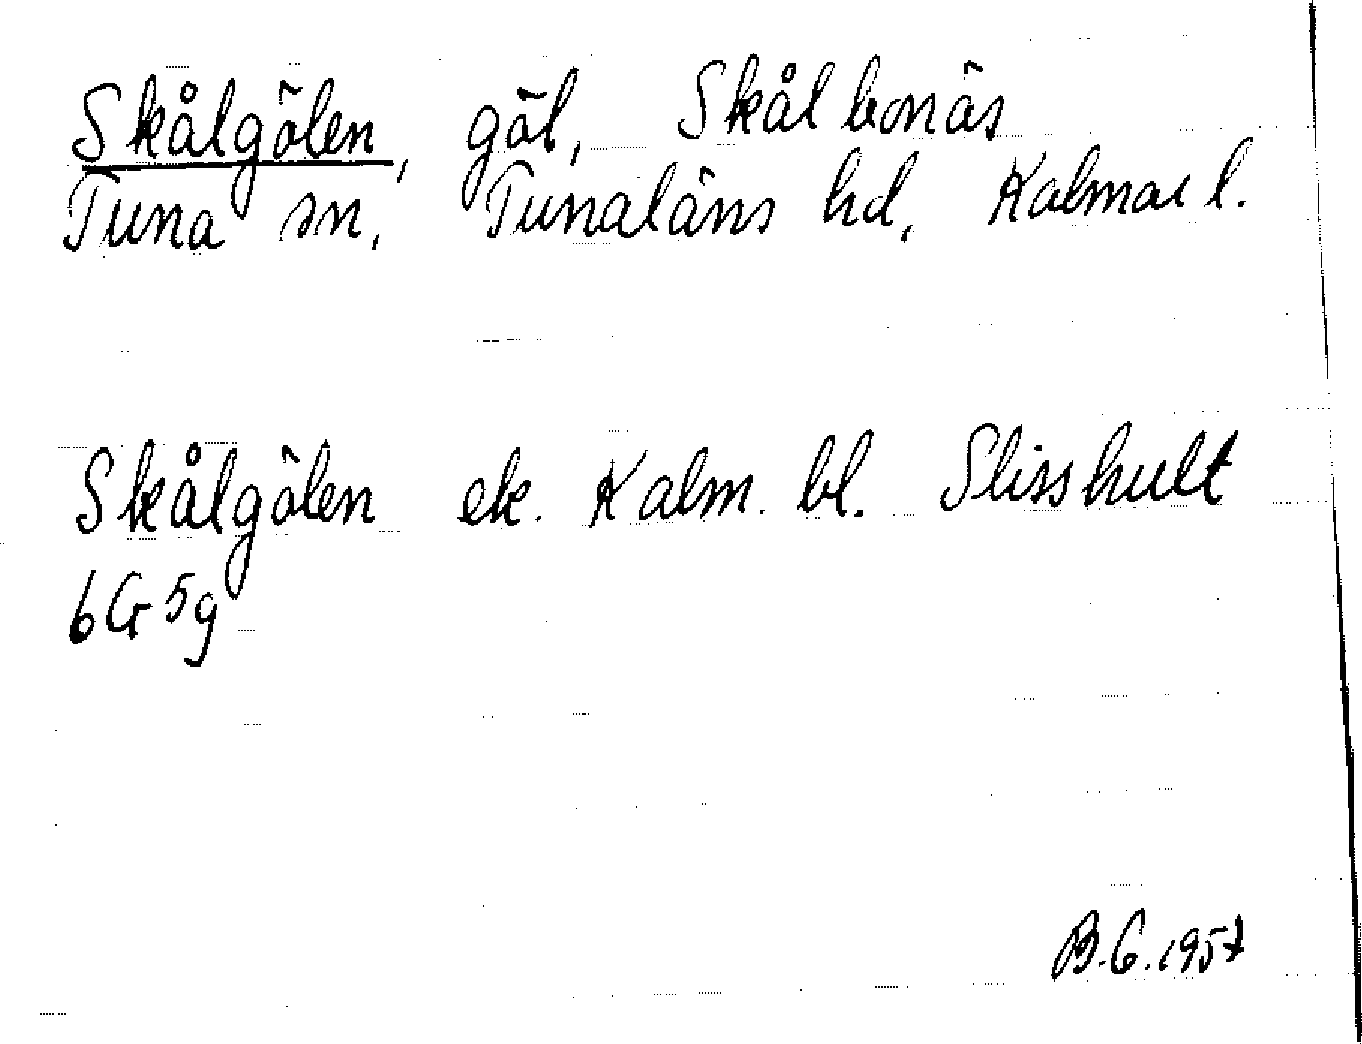 Skålgölen, göl, Skålbonäs
Tuna sn, Tunaläns hd, Kalmar l.
Skålgölen ek. Kalm. bl. Slisshult
6G 5g
B.G. 1957